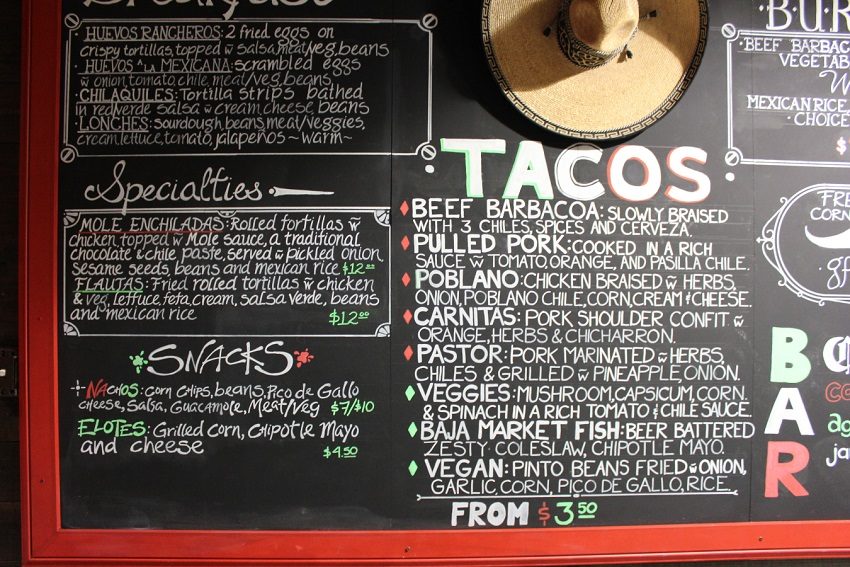 Breakfast
HUEVOS RANCHEROS: 2 fried eggs on
crispy tortillas, topped w̃ salsa, meat/veg, beans
HUEVOS ^LA MEXICANA: scrambled eggs
w̃ onion, tomato, chile, meat/veg, beans
CHILAQUILES: Tortilla strips bathed
in red/verde salsa w̃ cream, cheese, beans
LONCHES: sourdough, beans, meat/veggies,
cream, lettuce, tomato, jalapeños ~ warm ~
Specialties
MOLE ENCHILADAS: Rolled tortillas w̃
chicken topped w̃ Mole sauce, a traditional
chocolate & chile paste, served w̃ pickled onion,
sesame seeds, beans and mexican rice $12.00
FLAUTAS: Fried rolled tortillas w̃ chicken
& veg, lettuce, feta, cream, salsa verde, beans
and mexican rice $12.00
SNACKS
NACHOS: corn chips, beans, Pico de Gallo
cheese, Salsa, Guacamole, Meat/Veg $7/$10
ELOTES: Grilled corn, Chipotle Mayo
and cheese $4.50
TACOS
BEEF BARBACOA: SLOWLY BRAISED
WITH 3 CHILES, SPICES AND CERVEZA.
PULLED PORK: COOKED IN A RICH
SAUCE w̃ TOMATO, ORANGE, AND PASILLA CHILE.
POBLANO: CHICKEN BRAISED w̃ HERBS,
ONION, POBLANO CHILE, CORN, CREAM & CHEESE.
CARNITAS: PORK SHOULDER CONFIT w̃
ORANGE, HERBS & CHICHARRON.
PASTOR: PORK MARINATED w̃ HERBS,
CHILES & GRILLED w̃ PINEAPPLE, ONION.
VEGGIES: MUSHROOM, CAPSICUM, CORN.
& SPINACH IN A RICH TOMATO & CHILE SAUCE.
BAJA MARKET FISH: BEER BATTERED
ZESTY COLESLAW, CHIPOTLE MAYO.
VEGAN: PINTO BEANS FRIED w̃ ONION,
GARLIC, CORN, PICO DE GALLO, RICE.
FROM $3.50
BUR
BEEF BARBACO
VEGETAB
W
MEXICAN RICE,
CHOICE
$
FRE
CORN
BAR
ag
ja